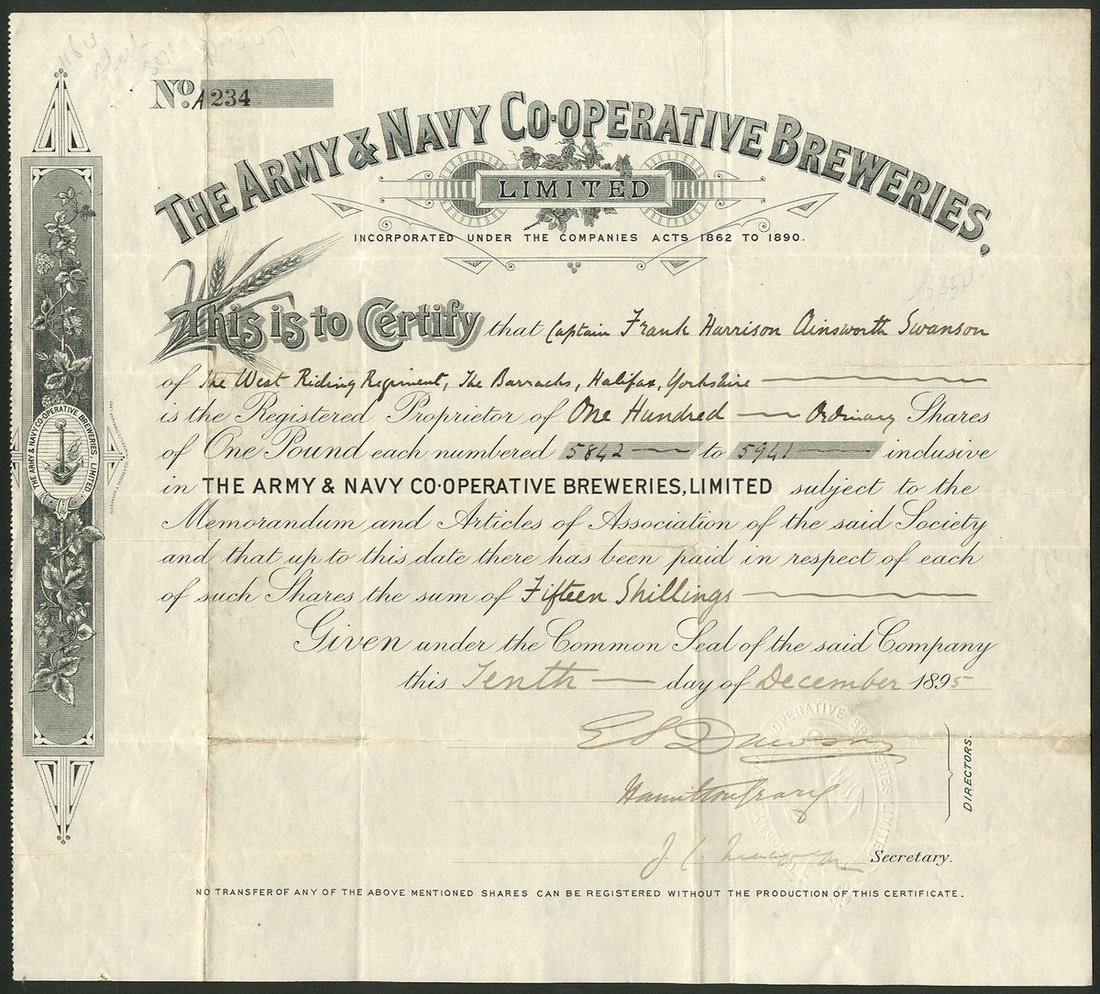 No. A234
THE ARMY & NAVY CO-OPERATIVE BREWERIES,
LIMITED
INCORPORATED UNDER THE COMPANIES ACTS 1862 TO 1890.
This is to Certify that Captain Frank Harrison Ainsworth Swanson
of The West Riding Regiment, The Barracks, Halifax, Yorkshire
is the Registered Proprietor of One Hundred Ordinary Shares
of One Pound each numbered 5842 to 5941 inclusive
in THE ARMY & NAVY CO-OPERATIVE BREWERIES, LIMITED subject to the
Memorandum and Articles of Association of the said Society
and that up to this date there has been paid in respect of each
of such Shares the sum of Fifteen Shillings
Given under the Common Seal of the said Company
this Tenth day of December 1895
DIRECTORS.
Secretary.
NO TRANSFER OF ANY OF THE ABOVE MENTIONED SHARES CAN BE REGISTERED WITHOUT THE PRODUCTION OF THIS CERTIFICATE.
THE ARMY & NAVY CO-OPERATIVE BREWERIES LIMITED